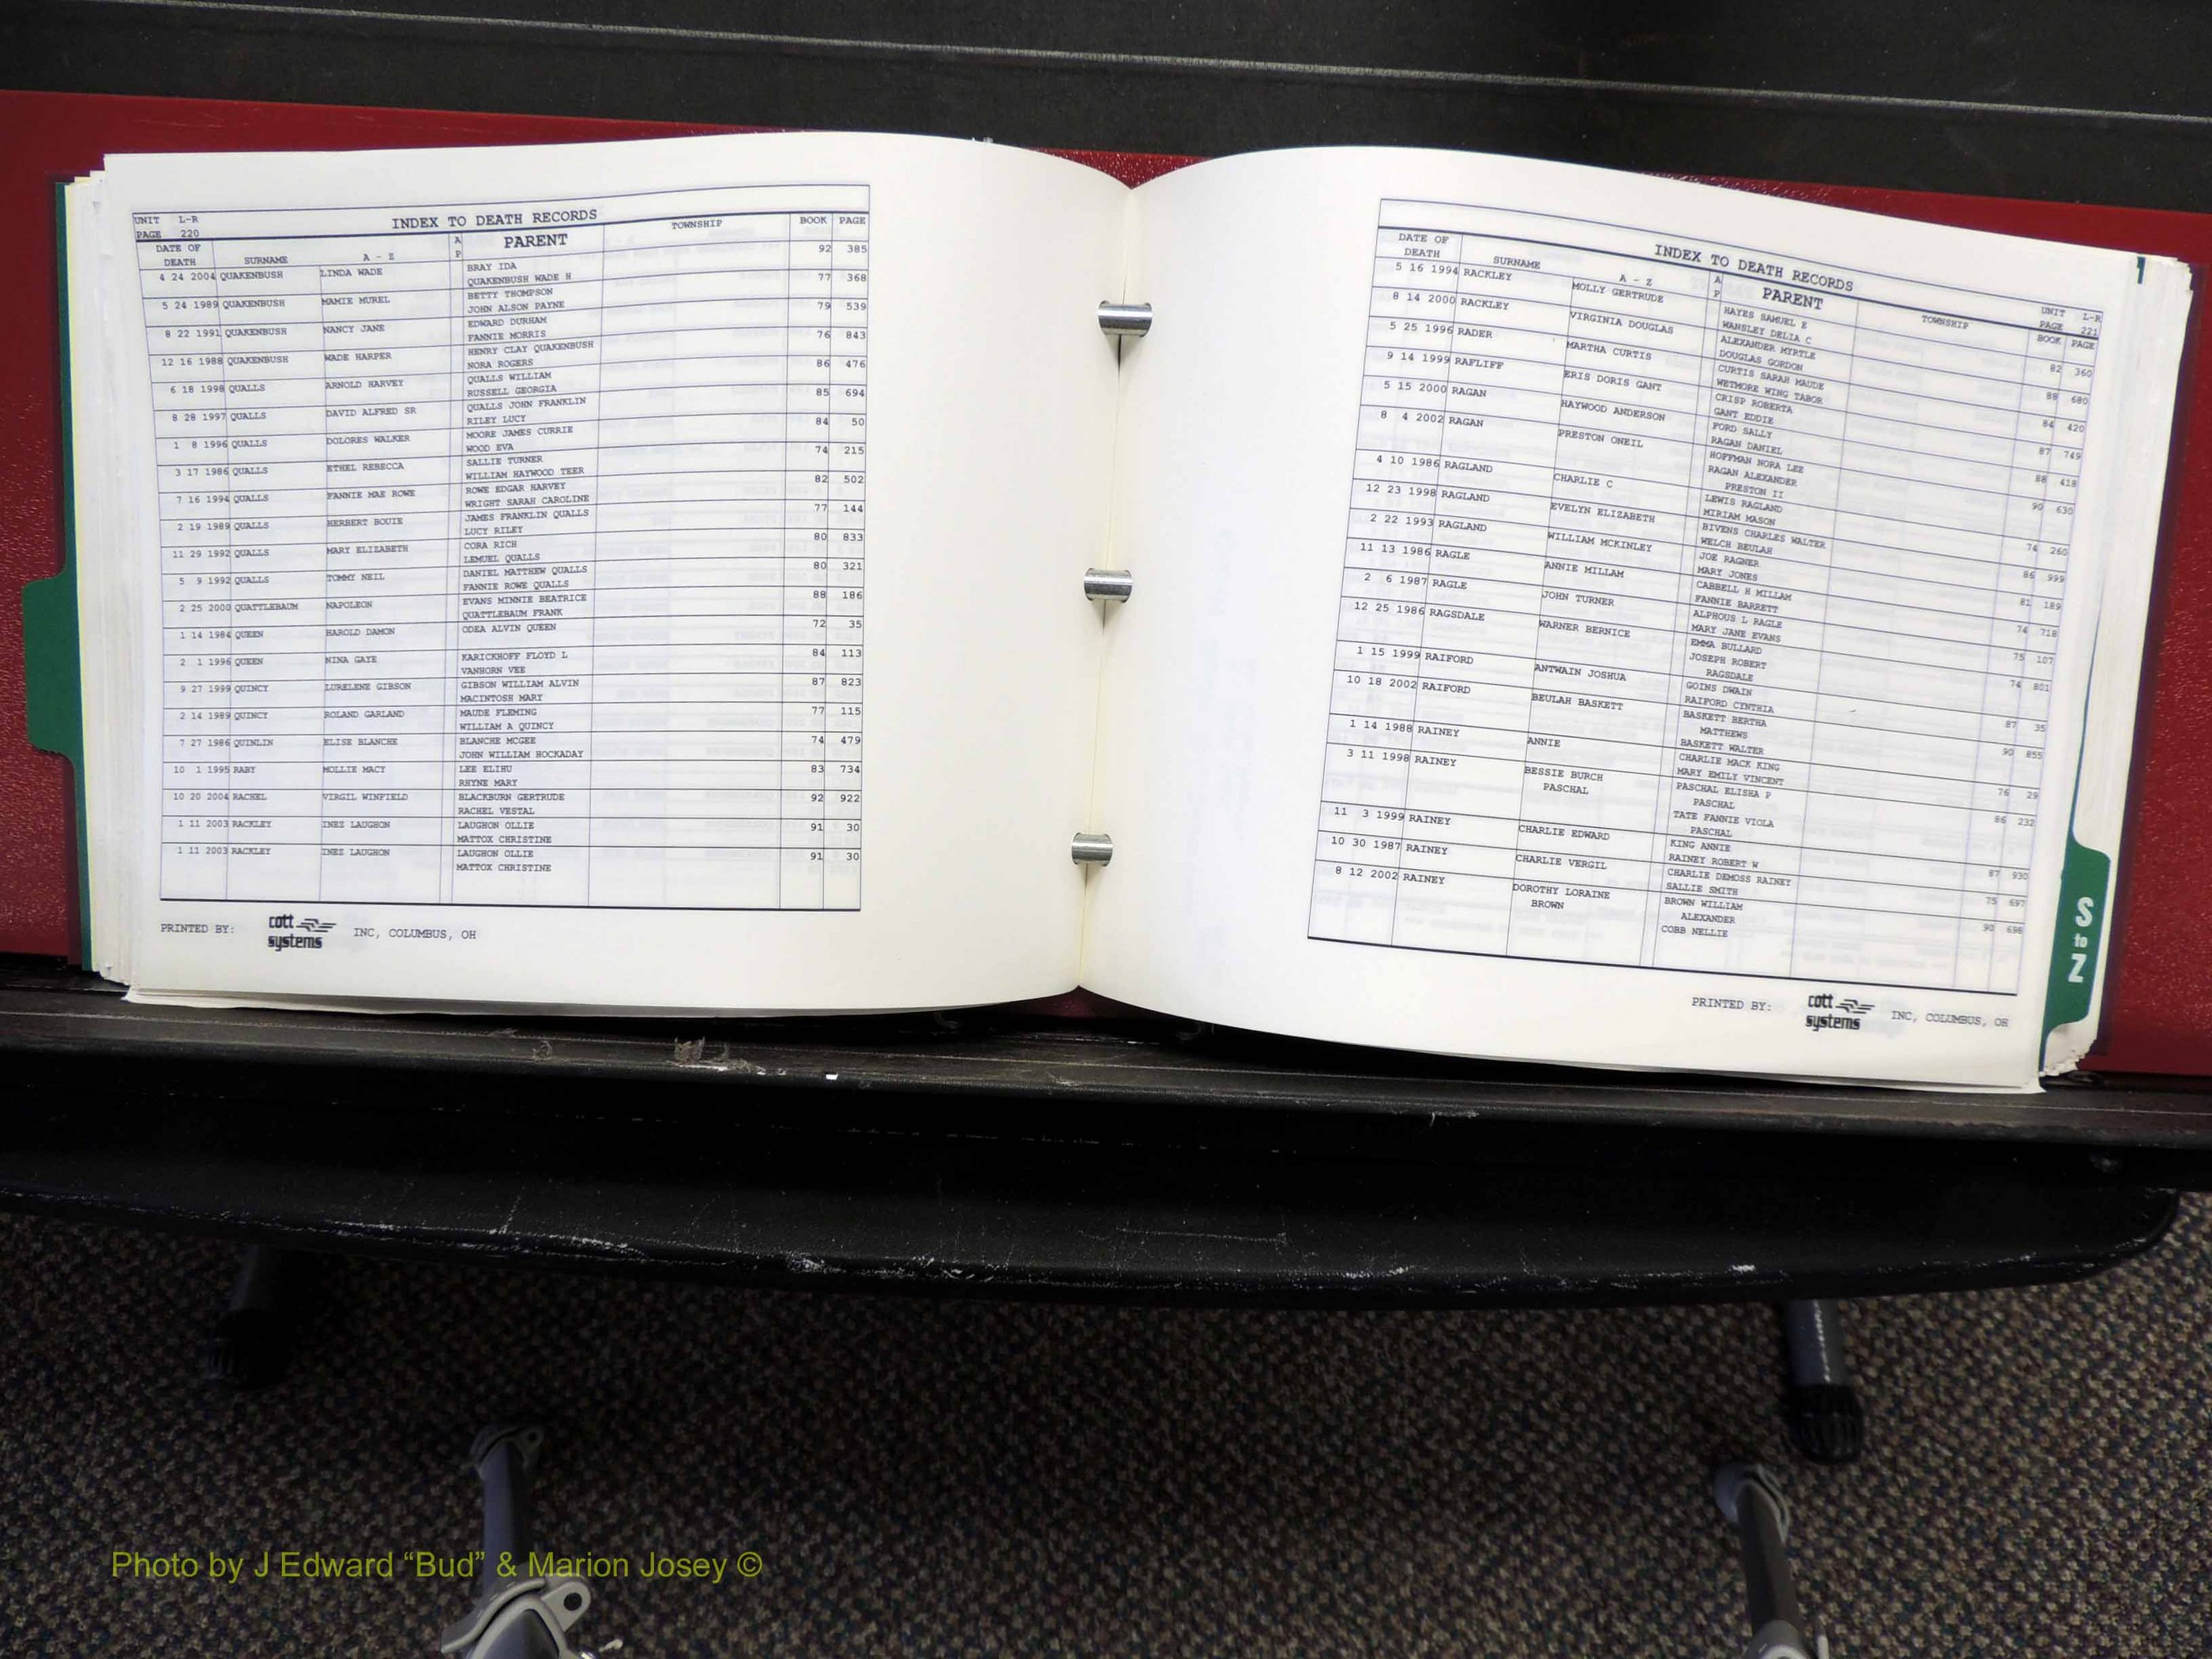 UNIT L-R INDEX TO DEATH RECORDS
PAGE 220 PARENT TOWNSHIP BOOK PAGE
DATE OF DEATH SURNAME A - Z A P
4 24 2004 QUAKENBUSH LINDA WADE BRAY IDA 92 385
QUAKENBUSH WADE H
5 24 1989 QUAKENBUSH MAMIE MUREL BETTY THOMPSON 77 368
JOHN ALSON PAYNE
8 22 1991 QUAKENBUSH NANCY JANE EDWARD DURHAM 79 539
FANNIE MORRIS
12 16 1988 QUAKENBUSH WADE HARPER HENRY CLAY QUAKENBUSH 76 843
NORA ROGERS
6 18 1998 QUALLS ARNOLD HARVEY QUALLS WILLIAM 86 476
RUSSELL GEORGIA
8 28 1997 QUALLS DAVID ALFRED SR QUALLS JOHN FRANKLIN 85 694
RILEY LUCY
1 8 1996 QUALLS DOLORES WALKER MOORE JAMES CURRIE 84 50
WOOD EVA
3 17 1986 QUALLS ETHEL REBECCA SALLIE TURNER 74 215
WILLIAM HAYWOOD TEER
7 16 1994 QUALLS FANNIE MAE ROWE ROWE EDGAR HARVEY 82 502
WRIGHT SARAH CAROLINE
2 19 1989 QUALLS HERBERT BOUIE JAMES FRANKLIN QUALLS 77 144
LUCY RILEY
11 29 1992 QUALLS MARY ELIZABETH CORA RICH 80 833
LEMUEL QUALLS
5 9 1992 QUALLS TOMMY NEIL DANIEL MATTHEW QUALLS 80 321
FANNIE ROWE QUALLS
2 25 2000 QUATTLEBAUM NAPOLEON EVANS MINNIE BEATRICE 88 186
QUATTLEBAUM FRANK
1 14 1984 QUEEN HAROLD DAMON ODEA ALVIN QUEEN 72 35
2 1 1996 QUEEN NINA GAYE KARICKHOFF FLOYD L 84 113
VANHORN VEE
9 27 1999 QUINCY LURELENE GIBSON GIBSON WILLIAM ALVIN 87 823
MACINTOSH MARY
2 14 1989 QUINCY ROLAND GARLAND MAUDE FLEMING 77 115
WILLIAM A QUINCY
7 27 1986 QUINLIN ELISE BLANCHE BLANCHE MCGEE 74 479
JOHN WILLIAM HOCKADAY
10 1 1995 RABY MOLLIE MACY LEE ELIHU 83 734
RHYNE MARY
10 20 2004 RACHEL VIRGIL WINFIELD BLACKBURN GERTRUDE 92 922
RACHEL VESTAL
1 11 2003 RACKLEY INEZ LAUGHON LAUGHON OLLIE 91 30
MATTOX CHRISTINE
1 11 2003 RACKLEY INEZ LAUGHON LAUGHON OLLIE 91 30
MATTOX CHRISTINE
PRINTED BY: cott systems INC, COLUMBUS, OH
INDEX TO DEATH RECORDS UNIT L-R
PAGE 221
DATE OF DEATH SURNAME A - Z A P PARENT TOWNSHIP BOOK PAGE
5 16 1994 RACKLEY MOLLY GERTRUDE HAYES SAMUEL E 82 360
WANSLEY DELIA C
8 14 2000 RACKLEY VIRGINIA DOUGLAS ALEXANDER MYRTLE 88 680
DOUGLAS GORDON
5 25 1996 RADER MARTHA CURTIS CURTIS SARAH MAUDE 84 420
WETMORE WING TABOR
9 14 1999 RAFLIFF ERIS DORIS GANT CRISP ROBERTA 87 749
GANT EDDIE
5 15 2000 RAGAN HAYWOOD ANDERSON FORD SALLY 88 418
RAGAN DANIEL
8 4 2002 RAGAN PRESTON ONEIL HOFFMAN NORA LEE 90 630
RAGAN ALEXANDER
PRESTON II
4 10 1986 RAGLAND CHARLIE C LEWIS RAGLAND 74 260
MIRIAM MASON
12 23 1998 RAGLAND EVELYN ELIZABETH BIVENS CHARLES WALTER 86 999
WELCH BEULAH
2 22 1993 RAGLAND WILLIAM MCKINLEY JOE RAGNER 81 189
MARY JONES
11 13 1986 RAGLE ANNIE MILLAM CABBELL H MILLAM 74 718
FANNIE BARRETT
2 6 1987 RAGLE JOHN TURNER ALPHOUS L RAGLE 75 107
MARY JANE EVANS
12 25 1986 RAGSDALE WARNER BERNICE EMMA BULLARD 74 801
JOSEPH ROBERT
RAGSDALE
1 15 1999 RAIFORD ANTWAIN JOSHUA GOINS DWAIN 87 35
RAIFORD CYNTHIA
10 18 2002 RAIFORD BEULAH BASKETT BASKETT BERTHA 90 855
MATTHEWS
BASKETT WALTER
1 14 1988 RAINEY ANNIE CHARLIE MACK KING 76 29
MARY EMILY VINCENT
3 11 1998 RAINEY BESSIE BURCH PASCHAL ELISHA P 86 232
PASCHAL PASCHAL
TATE FANNIE VIOLA
PASCHAL
11 3 1999 RAINEY CHARLIE EDWARD KING ANNIE 87 930
RAINEY ROBERT W
10 30 1987 RAINEY CHARLIE VERGIL CHARLIE DEMOSS RAINEY 75 697
SALLIE SMITH
8 12 2002 RAINEY DOROTHY LORAINE BROWN WILLIAM 90 698
BROWN ALEXANDER
COBB NELLIE
PRINTED BY: cott systems INC, COLUMBUS, OH
S to Z
Photo by J Edward “Bud” & Marion Josey ©